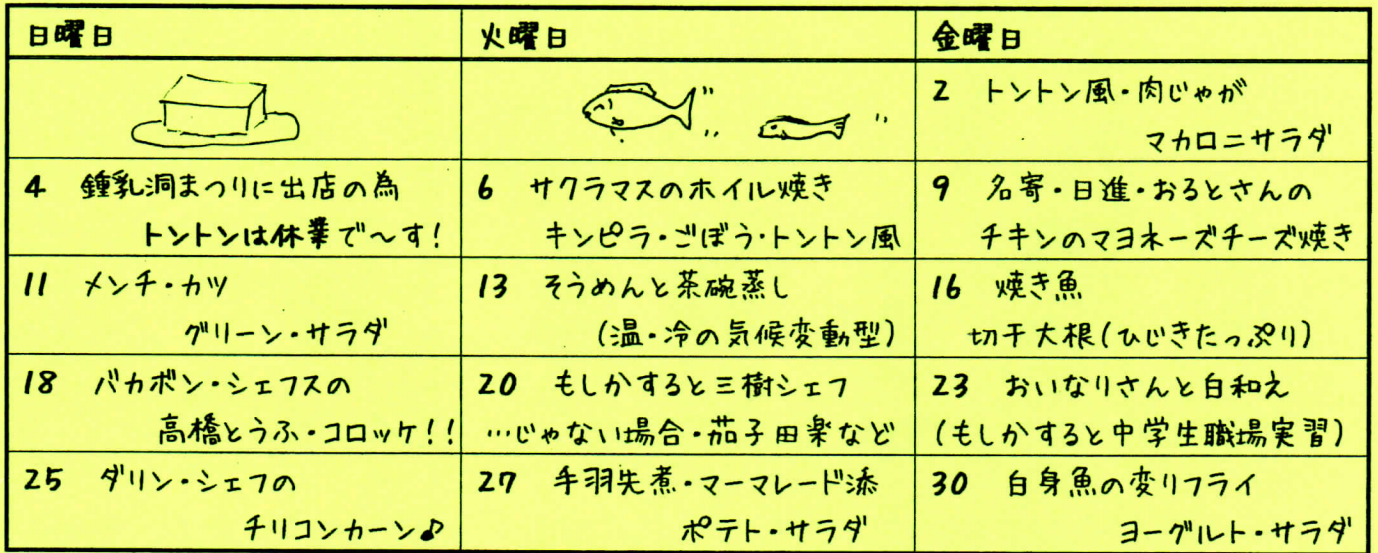 日曜日 火曜日 金曜日
2 トントン風・肉じゃが
マカロニサラダ
4 鍾乳洞まつりに出店の為
トントンは休業で〜す!
6 サクラマスのホイル焼き
キンピラ・ごぼう・トントン風
9 名寄・日進・おるとさんの
チキンのマヨネーズチーズ焼き
11 メンチ・カツ
グリーン・サラダ
13 そうめんと茶碗蒸し
(温・冷の気候変動型)
16 焼き魚
切干大根(ひじきたっぷり)
18 バカボン・シェフスの
高橋とうふ・コロッケ!!
20 もしかすると三樹シェフ
…じゃない場合・茄子田楽など
23 おいなりさんと白和え
(もしかすると中学生職場実習)
25 ダリン・シェフの
チリコンカーン♪
27 手羽先煮・マーマレード添
ポテト・サラダ
30 白身魚の変りフライ
ヨーグルト・サラダ